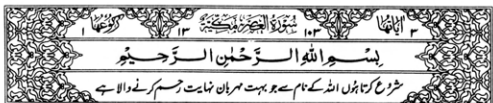 اٰيَاتُهَا ٣ ١٠٣ سُوْرَةُ الْعَصْرِ مَكِّيَّةٌ ١٣ رُكُوْعُهَا ١
بِسْمِ اللّٰهِ الرَّحْمٰنِ الرَّحِيْمِ
شروع کرتا ہوں اللہ کے نام سے جو بہت مہربان نہایت رحم کرنے والا ہے